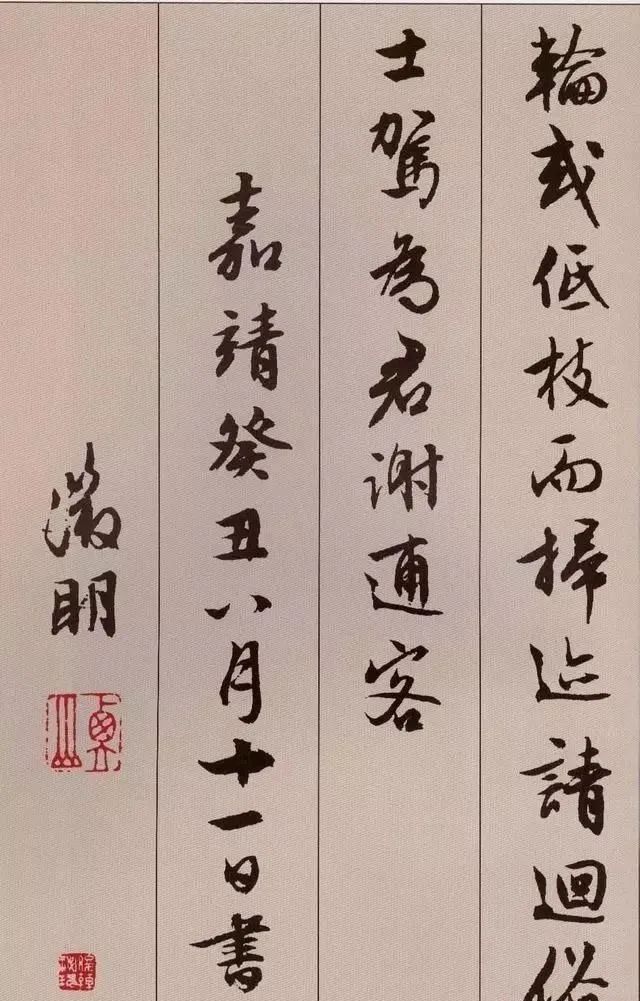 輪或低枝而掃迹請迴俗
士駕為君謝逋客
嘉靖癸丑八月十一日書
徵明